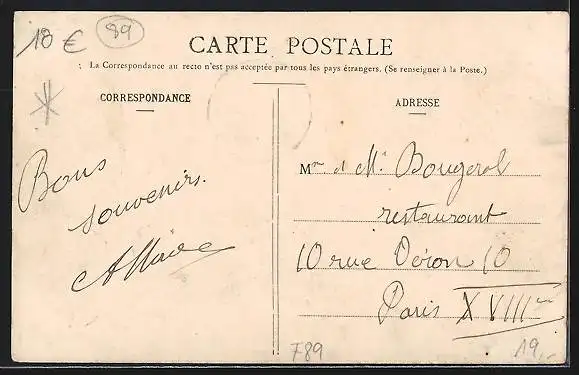 18 €
89
CARTE POSTALE
La Correspondance au recto n'est pas acceptée par tous les pays étrangers. (Se renseigner à la Poste.)
CORRESPONDANCE
Bons
souvenirs.
ADRESSE
Mr et Me Bougerol
restaurant
10 rue Véron 10
Paris XVIIIme
F89
19